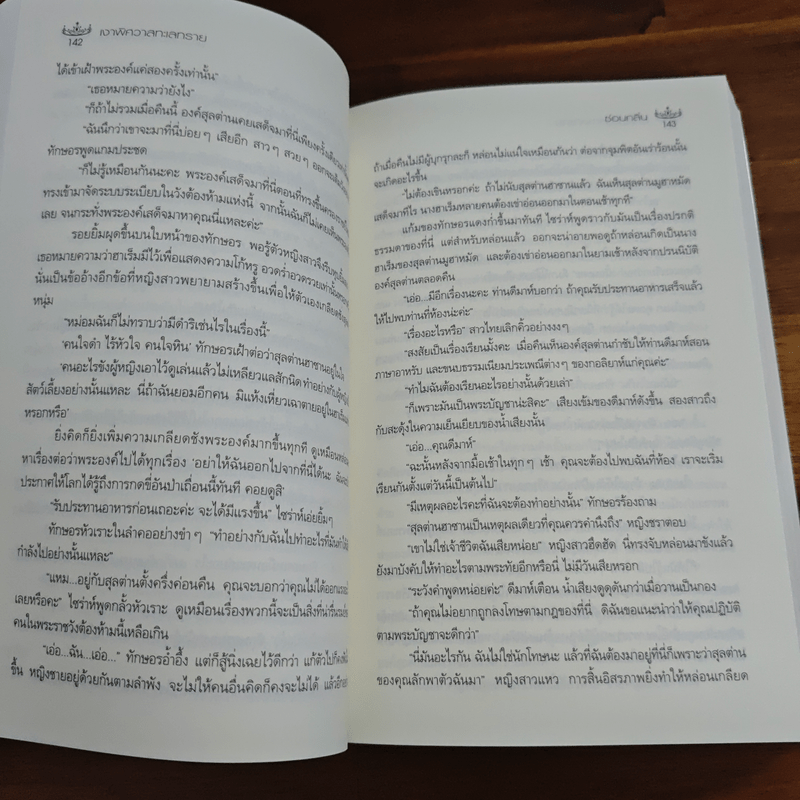 142 เงาพิศวาสทะเลทราย
ได้เข้าเฝ้าพระองค์แค่สองครั้งเท่านั้น"
"เธอหมายความว่ายังไง"
"ก็ถ้าไม่รวมเมื่อคืนนี้ องค์สุลต่านเคยเสด็จมาที่นี่เพียงครั้งเดียว
"ฉันนึกว่าเขาจะมาที่นี่บ่อยๆ เสียอีก สาวๆ สวยๆ ออกจะ
ทักษอรพูดแกมประชด
"ก็ไม่รู้เหมือนกันนะคะ พระองค์เสด็จมาที่นี่ตอนที่ทรงขึ้นครอง
ทรงเข้ามาจัดระบบระเบียบในวังต้องห้ามแห่งนี้ จากนั้นฉันก็ไม่เคย
เลย จนกระทั่งพระองค์เสด็จมาหาคุณนี่แหละค่ะ"
รอยยิ้มผุดขึ้นบนใบหน้าของทักษอร พอรู้ตัวหญิงสาวจึงรีบ
เธอหมายความว่าฮาเร็มมีไว้เพื่อแสดงความโก้หรู อวดร่ำอวดรวยเท่านั้น
นั่นเป็นข้ออ้างอีกข้อที่หญิงสาวพยายามสร้างขึ้นเพื่อให้ตัวเองเกลียดชัง
หนุ่ม
"หม่อมฉันก็ไม่ทราบว่ามีดำริเช่นไรในเรื่องนี้"
'คนใจดำ ไร้หัวใจ คนใจหิน' ทักษอรเฝ้าต่อว่าสุลต่านฮาซานอยู่ในใจ
'คนอะไรขังผู้หญิงเอาไว้ดูเล่นแล้วไม่เหลียวแลสักนิด ทำอย่างกับ
สัตว์เลี้ยงอย่างนั้นแหละ นี่ถ้าฉันยอมอีกคน มิแห้งเหี่ยวเฉาตายอยู่ใน
หรอกหรือ'
ยิ่งคิดก็ยิ่งเพิ่มความเกลียดชังพระองค์มากขึ้นทุกที ดูเหมือน
หาเรื่องต่อว่าพระองค์ไปได้ทุกเรื่อง 'อย่าให้ฉันออกไปจากที่นี่ได้นะ
ประกาศให้โลกได้รู้ถึงการกดขี่อันป่าเถื่อนนี้ทันที คอยดูสิ'
"รับประทานอาหารก่อนเถอะค่ะ จะได้มีแรงขึ้น" ไซร่าห์เอ่ยยิ้มๆ
ทักษอรหัวเราะในลำคออย่างขำๆ "ทำอย่างกับฉันไปทำอะไรที่
กำลังไปอย่างนั้นแหละ"
"แหม...อยู่กับสุลต่านตั้งครึ่งค่อนคืน คุณจะบอกว่าคุณไม่ได้ออก
เลยหรือคะ" ไซร่าห์พูดกลั้วหัวเราะ ดูเหมือนเรื่องพวกนี้จะเป็นสิ่งที่
คนในพระราชวังต้องห้ามนี้เหลือเกิน
"เอ่อ...ฉัน...เอ่อ..." ทักษอรอ้ำอึ้ง แต่ก็สู้นิ่งเฉยไว้ดีกว่า แก้ตัวไปก็
ขึ้น หญิงชายอยู่ด้วยกันตามลำพัง จะไม่ให้คนอื่นคิดก็คงจะไม่ได้
ซ่อนกลิ่น 143
ถ้าเมื่อคืนไม่มีผู้บุกรุกละก็ หล่อนไม่แน่ใจเหมือนกันว่า ต่อจากจุมพิตอันเร่าร้อนนั้น
จะเกิดอะไรขึ้น
"ไม่ต้องเขินหรอกค่ะ ถ้าไม่นับสุลต่านฮาซานแล้ว ฉันเห็นสุลต่านมูฮาหมัด
เสด็จมาทีไร นางฮาเร็มหลายคนต้องเข้าอ่อนออกมาในตอนเช้าทุกที"
แก้มของทักษอรแดงก่ำขึ้นมาทันที ไซร่าห์พูดราวกับมันเป็นเรื่องปรกติ
ธรรมดาของที่นี่ แต่สำหรับหล่อนแล้ว ออกจะน่าอายพอดูถ้าหล่อนเกิดเป็นนาง
ฮาเร็มของสุลต่านมูฮาหมัด และต้องเข่าอ่อนออกมาในยามเช้าหลังจากปรนนิบัติ
องค์สุลต่านตลอดคืน
"เอ่อ...มีอีกเรื่องนะคะ ท่านดีมาห์บอกว่า ถ้าคุณรับประทานอาหารเสร็จแล้ว
ให้ไปพบท่านที่ห้องน่ะค่ะ"
"เรื่องอะไรหรือ" สาวไทยเลิกคิ้วอย่างงงๆ
"สงสัยเป็นเรื่องเรียนมั้งคะ เมื่อคืนเห็นองค์สุลต่านกำชับให้ท่านดีมาห์สอน
ภาษาอาหรับ และขนบธรรมเนียมประเพณีต่างๆ ของกอลิยาห์แก่คุณค่ะ"
"ทำไมฉันต้องเรียนอะไรอย่างนั้นด้วยเล่า"
"ก็เพราะมันเป็นพระบัญชาน่ะสิคะ" เสียงเข้มของดีมาห์ดังขึ้น สองสาวถึง
กับสะดุ้งในความเย็นเยียบของน้ำเสียงนั้น
"เอ่อ...คุณดีมาห์"
"ฉะนั้นหลังจากมื้อเช้าในทุกๆ เช้า คุณจะต้องไปพบฉันที่ห้อง เราจะเริ่ม
เรียนกันตั้งแต่วันนี้เป็นต้นไป"
"มีเหตุผลอะไรคะที่ฉันจะต้องทำอย่างนั้น" ทักษอรร้องถาม
"สุลต่านฮาซานเป็นเหตุผลเดียวที่คุณควรคำนึงถึง" หญิงชราตอบ
"เขาไม่ใช่เจ้าชีวิตฉันเสียหน่อย" หญิงสาวฮึดฮัด นี่ทรงจับหล่อนมาขังแล้ว
ยังมาบังคับให้ทำอะไรตามพระทัยอีกหรือนี่ ไม่มีวันเสียหรอก
"ระวังคำพูดหน่อยค่ะ" ดีมาห์เตือน น้ำเสียงดูดุดันกว่าเมื่อวานเป็นกอง
"ถ้าคุณไม่อยากถูกลงโทษตามกฎของที่นี่ ดิฉันขอแนะนำว่าให้คุณปฏิบัติ
ตามพระบัญชาจะดีกว่า"
"นี่มันอะไรกัน ฉันไม่ใช่นักโทษนะ แล้วที่ฉันต้องมาอยู่ที่นี่ก็เพราะว่าสุลต่าน
ของคุณลักพาตัวฉันมา" หญิงสาวแหว การสิ้นอิสรภาพยิ่งทำให้หล่อนเกลียด